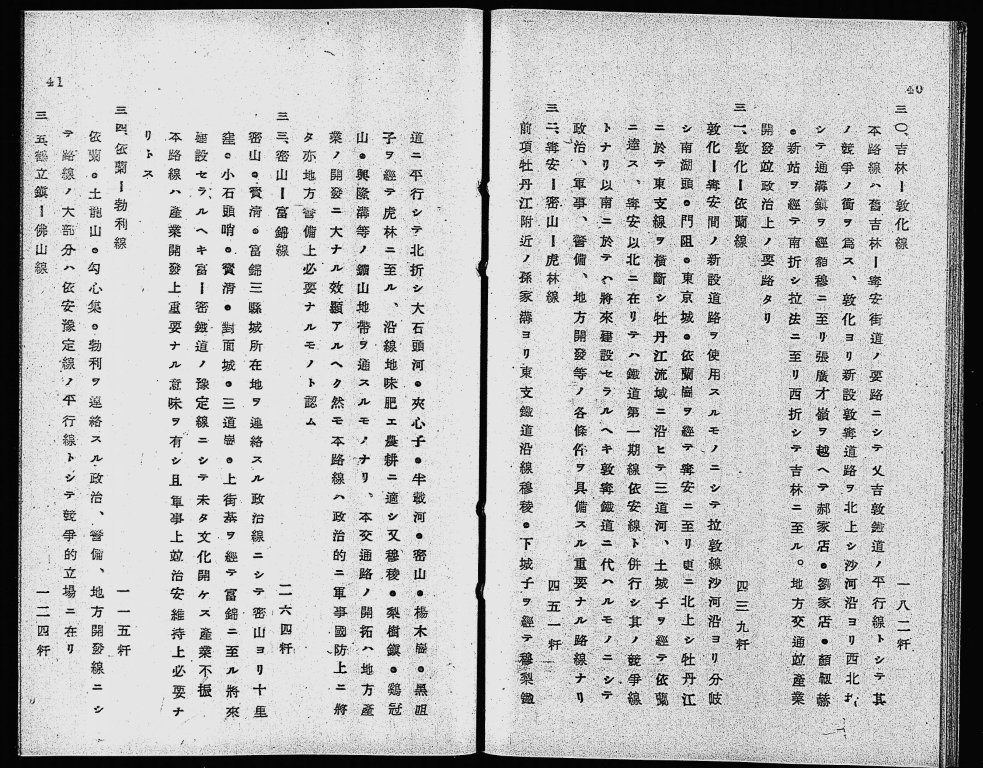 40
三〇、吉林ー敦化線 一八二粁
本路線ハ舊吉林ー寗安街道ノ要路ニシテ又吉敦鐵道ノ平行線トシテ其
ノ競爭ノ衝ヲ爲ス、敦化ヨリ新設敦寗道路ヲ北上シ沙河沿ヨリ西北折
シテ通溝鎭ヲ經額穆ニ至リ張廣才嶺ヲ越ヘテ郝家店。劉家店。顏靰赫
。新站ヲ經テ南折シ拉法ニ至リ西折シテ吉林ニ至ル。地方交通竝產業
開發竝政治上ノ要路タリ
三一、敦化ー依蘭線 四三九粁
敦化ー寗安間ノ新設道路ヲ使用スルモノニシテ拉敦線沙河沿ヨリ分岐
シ南湖頭。門阻。東京城。依蘭崗ヲ經テ寗安ニ至リ更ニ北上シ牡丹江
ニ於テ東支線ヲ橫斷シ牡丹江流域ニ沿ヒテ三道河、土城子ヲ經テ依蘭
ニ達ス、寗安以北ニ在リテハ鐵道第一期線依安線ト併行シ其ノ競爭線
トナリ以南ニ於テハ將來建設セラルヘキ敦寗鐵道ニ代ハルモノニシテ
政治、軍事、警備、地方開發等ノ各條件ヲ具備スル重要ナル路線ナリ
三二、寗安ー密山ー虎林線 四五一粁
前項牡丹江附近ノ孫家溝ヨリ東支鐵道沿線穆稜。下城子ヲ經テ穆梨鐵
41
道ニ平行シテ北折シ大石頭河。夾心子。半截河。密山。楊木崗。黑咀
子ヲ經テ虎林ニ至ル、沿線地味肥エ農耕ニ適シ又穆稜。梨樹鎭。鷄冠
山。興隆溝等ノ鑛山地帶ヲ通スルモノナリ、本交通路ノ開拓ハ地方產
業ノ開發ニ大ナル效顯アルヘク然モ本路線ハ政治的ニ軍事國防上ニ將
タ亦地方警備上必要ナルモノト認ム
三三、密山ー富錦線 二六四粁
密山。寶淸。富錦三縣城所在地ヲ連絡スル政治線ニシテ密山ヨリ十里
窪。小石頭哨。寶淸。對面城。三道崗。上街基ヲ經テ富錦ニ至ル將來
建設セラルヘキ富ー密鐵道ノ豫定線ニシテ未タ文化開ケス產業不振
本路線ハ產業開發上重要ナル意味ヲ有シ且軍事上竝治安維持上必要ナ
リトス
三四、依蘭ー勃利線 一一五粁
依蘭。土龍山。勾心集。勃利ヲ連絡スル政治、警備、地方開發線ニシ
テ路線ノ大部分ハ依安豫定線ノ平行線トシテ競爭的立場ニ在リ
三五、鶴立鎭ー佛山線 一二四粁